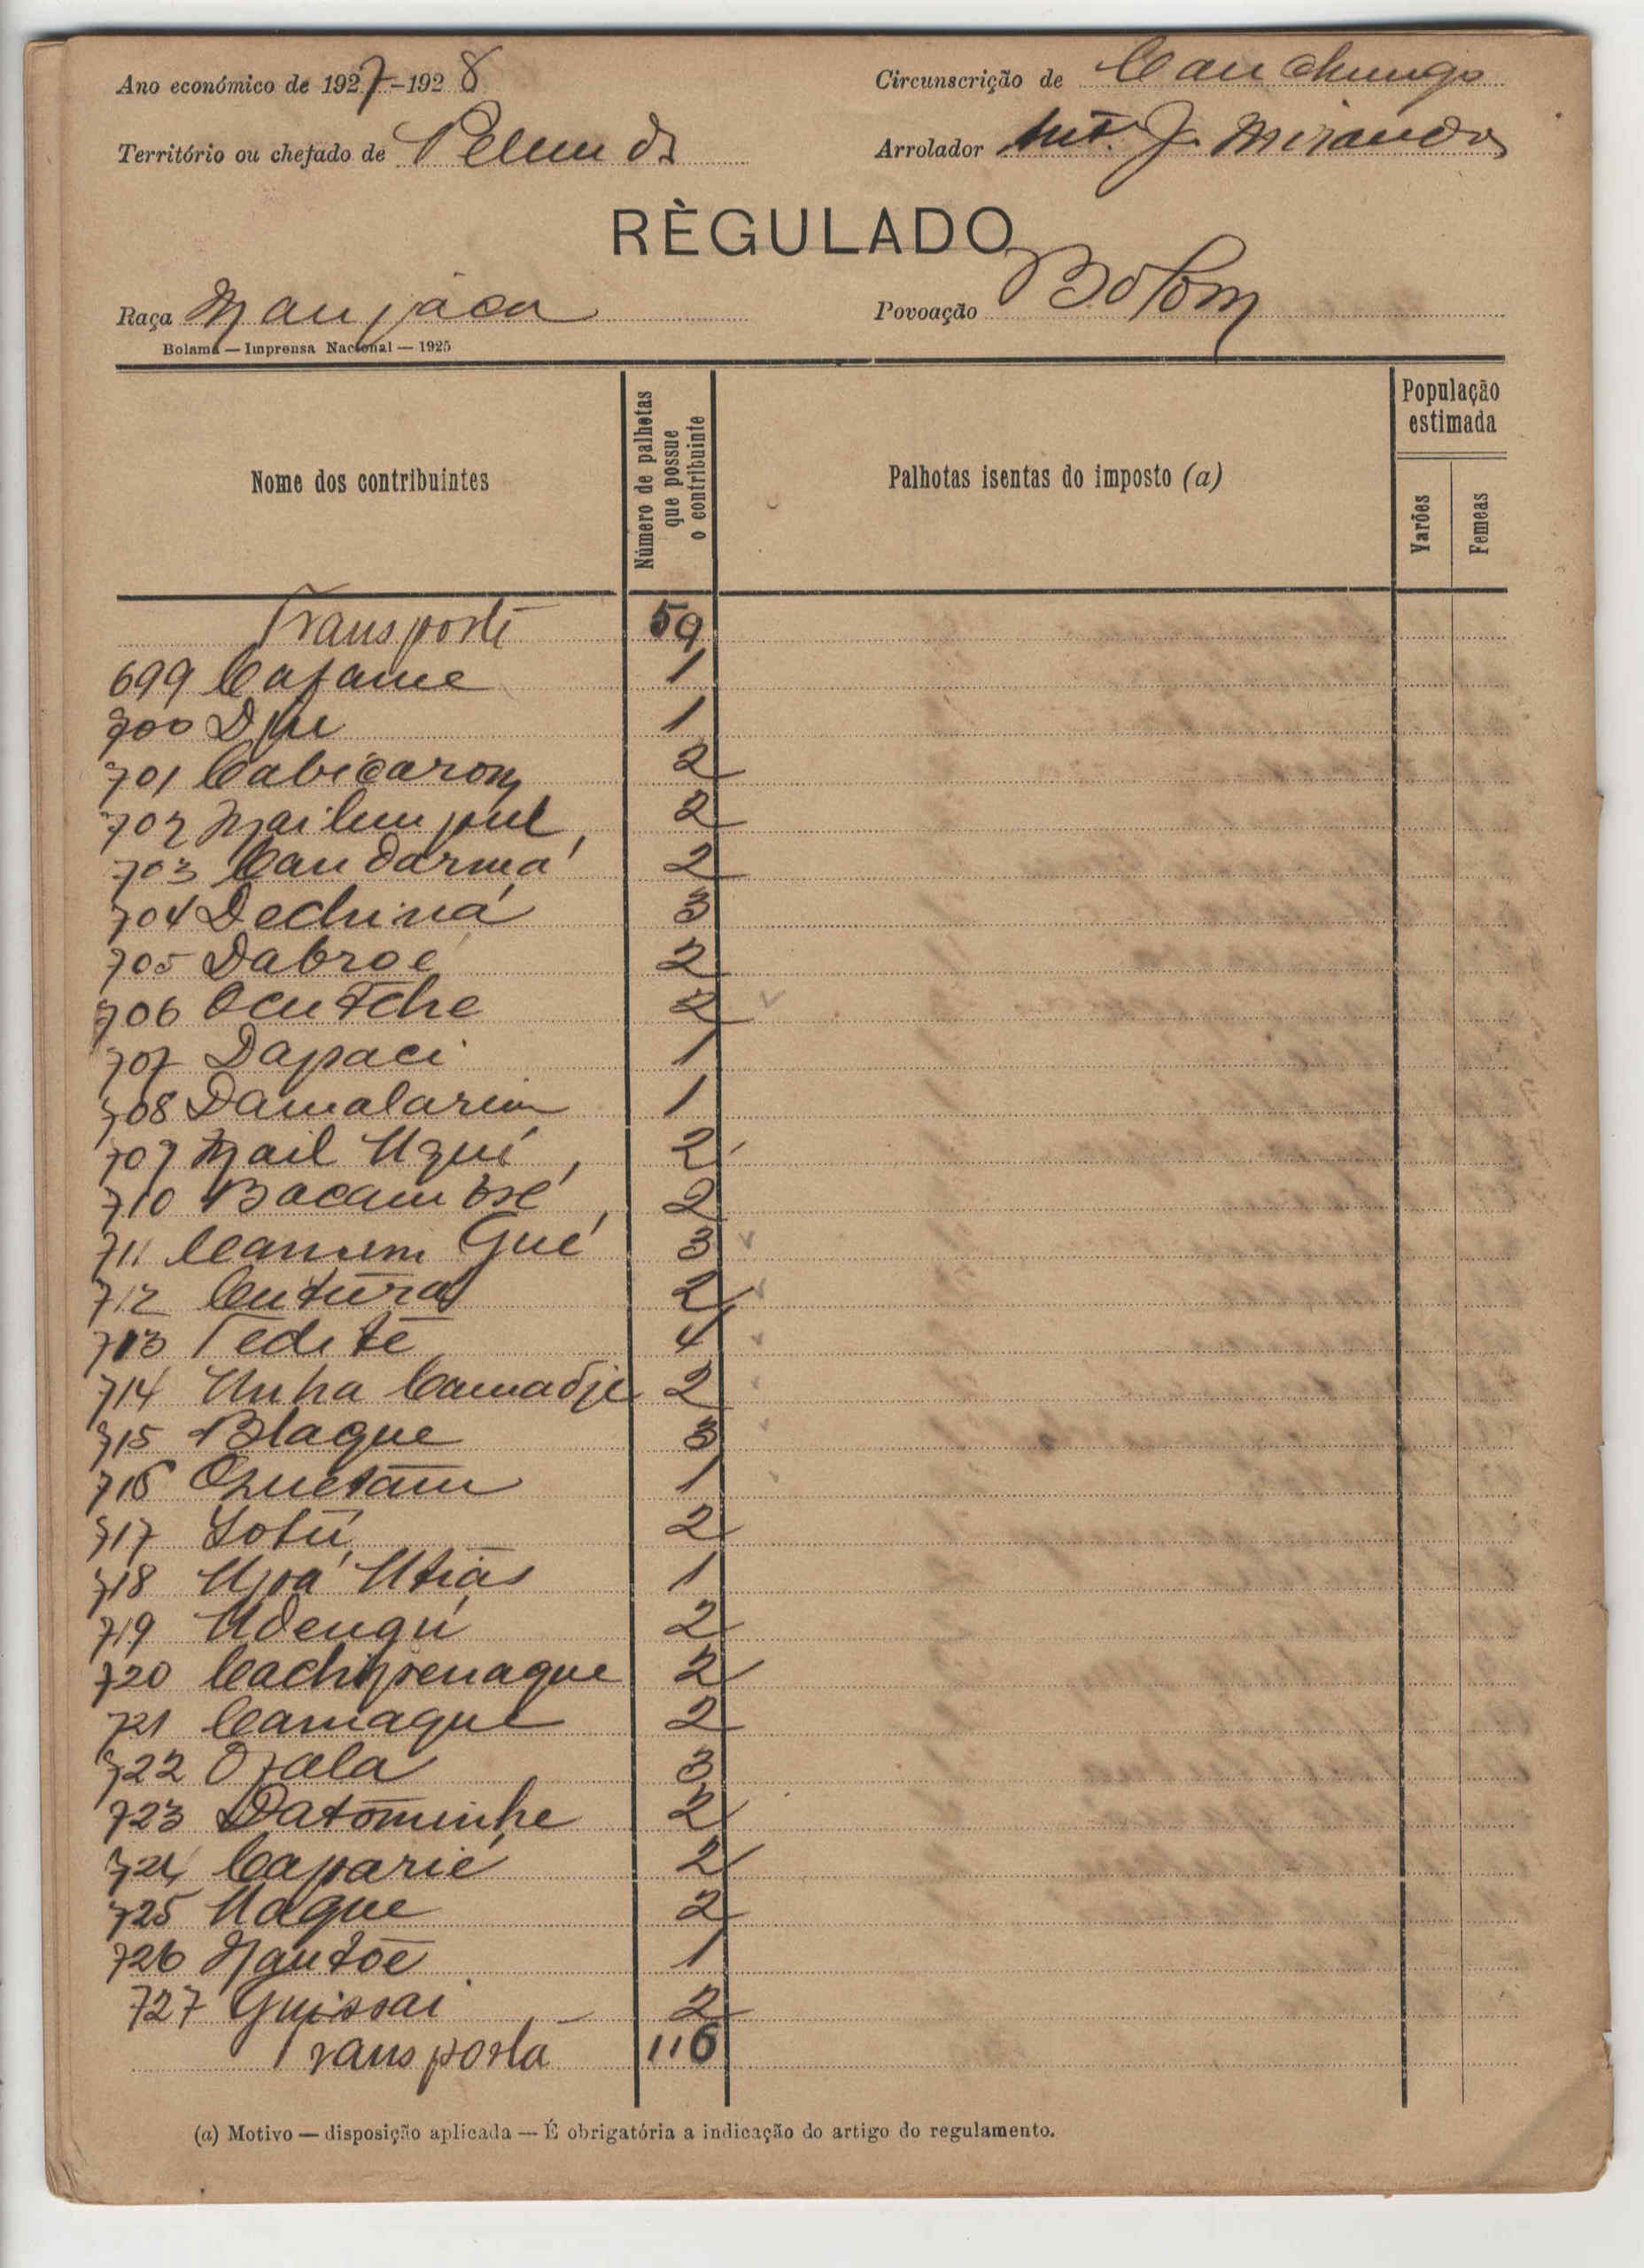 Ano económico de 1927-1928
Circunscrição de Canchungo
Território ou chefado de Pelundo
Arrolador Ant. J. Miranda
RÈGULADO
Raça Manjáca
Povoação Bolom
Bolama — Imprensa Nacional — 1925
Nome dos contribuintes
Número de palhotas que possue o contribuinte
Palhotas isentas do imposto (a)
População estimada
Varões
Femeas
Transporte 59
699 Cafame 1
700 Dju 1
701 Cabicarom 2
702 Mailum pul 2
703 Candarmá 2
704 Dechiná 3
705 Dabroé 2
706 Ocutche 2
707 Dapaci 1
708 Damalarim 1
709 Mail Uqui 2
710 Bacambré 2
711 Canum Gué 3
712 Cutura 2
713 Tedite 4
714 Unha Camadje 2
715 Blaque 3
716 Quetam 1
717 Lotu 2
718 Upá Utiás 1
719 Udengú 2
720 Cachipenaque 2
721 Camaque 2
722 Ojala 3
723 Datominhe 2
724 Caparié 2
725 Uaque 2
726 Nautoe 1
727 Guissai 2
Transporta 116
(a) Motivo — disposição aplicada — É obrigatória a indicação do artigo do regulamento.